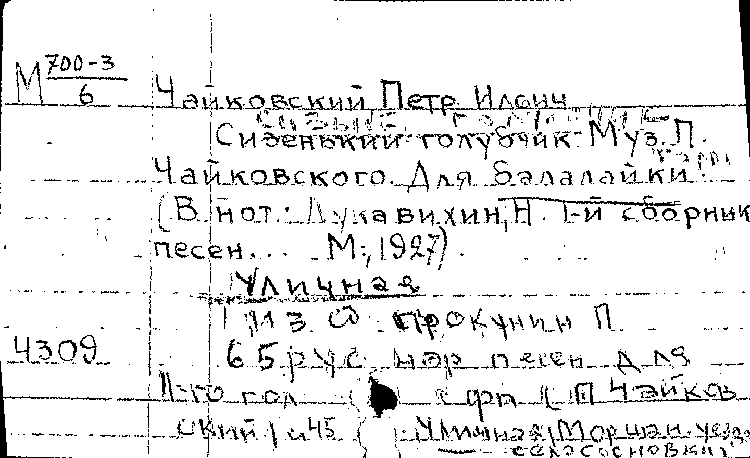 М 700-3/6
Чайковский Петр Ильич
Сизенький голубчик. Муз. П.
Чайковского. Для балалайки.
(В нот.: Лукавихин, Н. 1-й сборник
песен... М., 1927).
Уличная
из сб. Прокунин П.
4309 65 рус нар песен для
1-го гол фп (П Чайков
ский) с 45 Уличная (Моршан. уезда
село Сосновки)